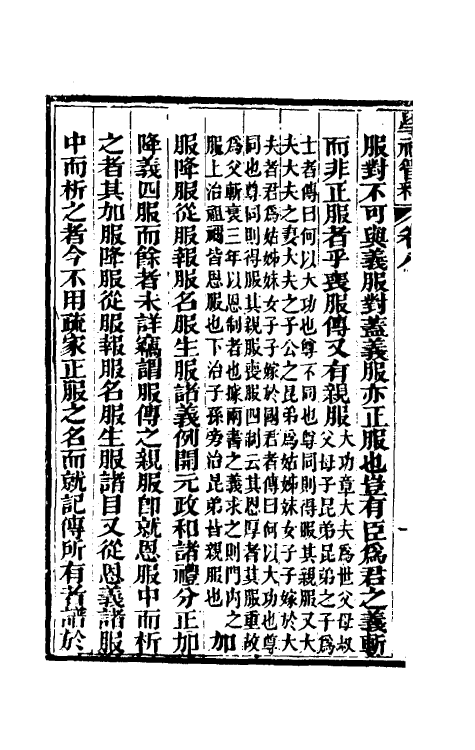 學禮管釋 卷八
服對不可與義服對蓋義服亦正服也豈有臣為君之義斬
而非正服者乎喪服傳又有親服大功章大夫為世父母叔
父母子昆弟昆弟之子為
士者傳曰何以大功也尊不同也尊同則得服其親服又大
夫大夫之妻大夫之子公之昆弟為姑姊妹女子子嫁於大
夫者君為姑姊妹女子子嫁於國君者傳曰何以大功也尊
同也尊同則得服其親服喪服四制云其恩厚者其服重故
為父斬衰三年以恩制者也據兩書之義求之則門內之
服上治祖禰皆恩服也下治子孫旁治昆弟皆親服也加
服降服從服報服名服生服諸義例開元政和諸禮分正加
降義四服而餘者未詳竊謂服傳之親服卽就恩服中而析
之者其加服降服從服報服名服生服諸目又從恩義諸服
中而析之者今不用疏家正服之名而就記傳所有者譜於